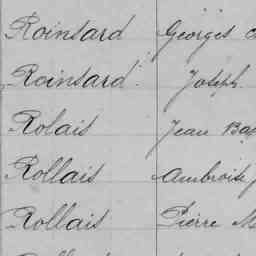 Roinsard Georges
Roinsard Joseph
Rolais Jean Bap
Rollais Ambroise
Rollais Pierre M